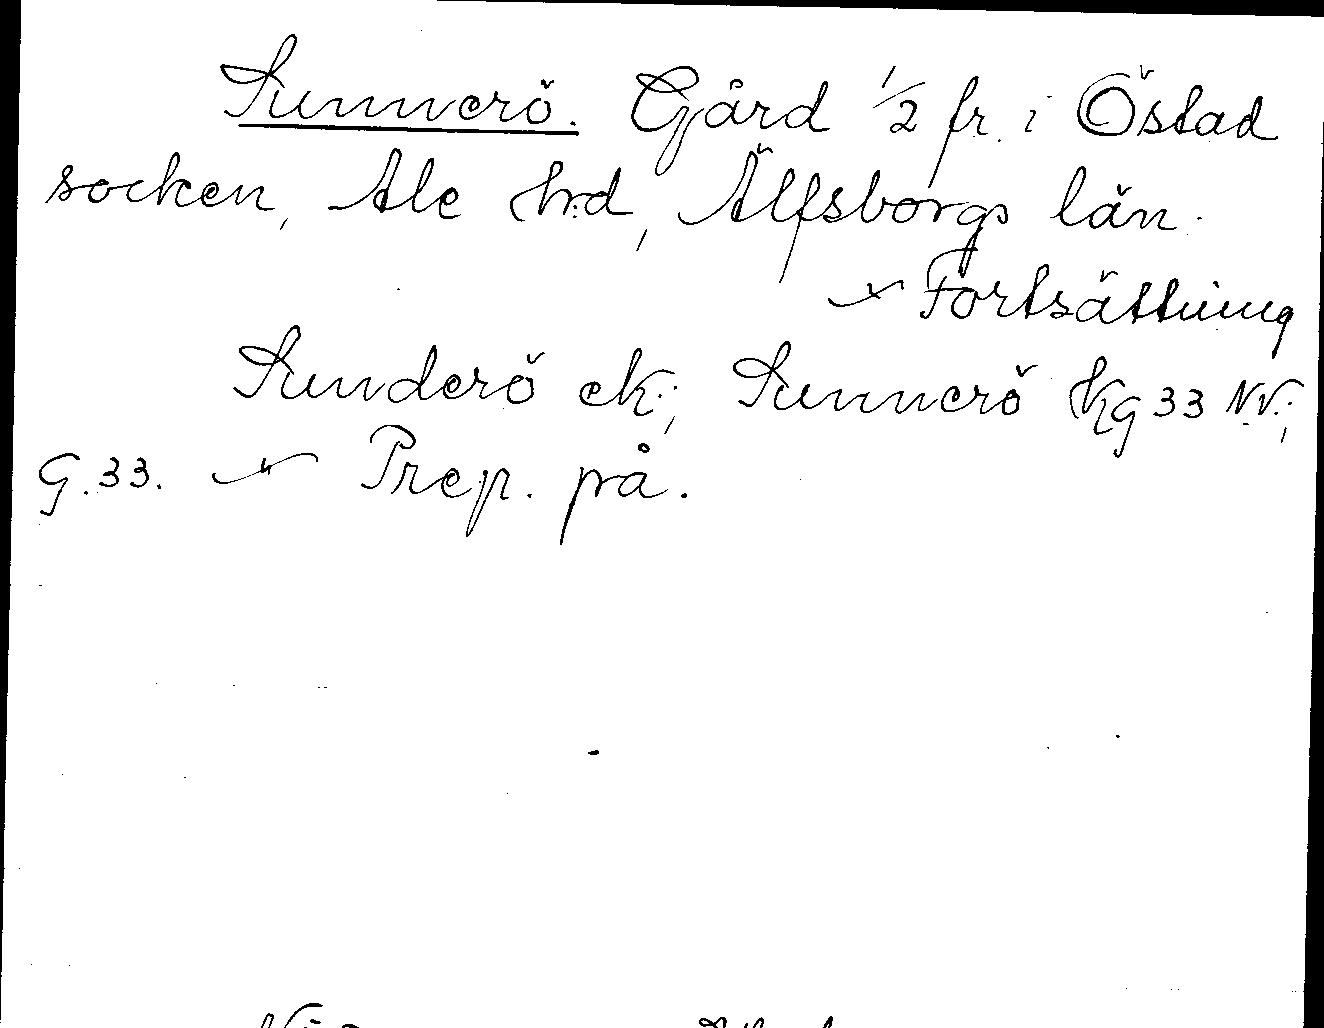 Sunnerö. Gård 1/2 fr. i Östad
socken, Ale h:d, Älfsborgs län.
Fortsättning
Sunderö ek.; Sunnerö Kg 33 N.V.;
G. 33. Prep. på.